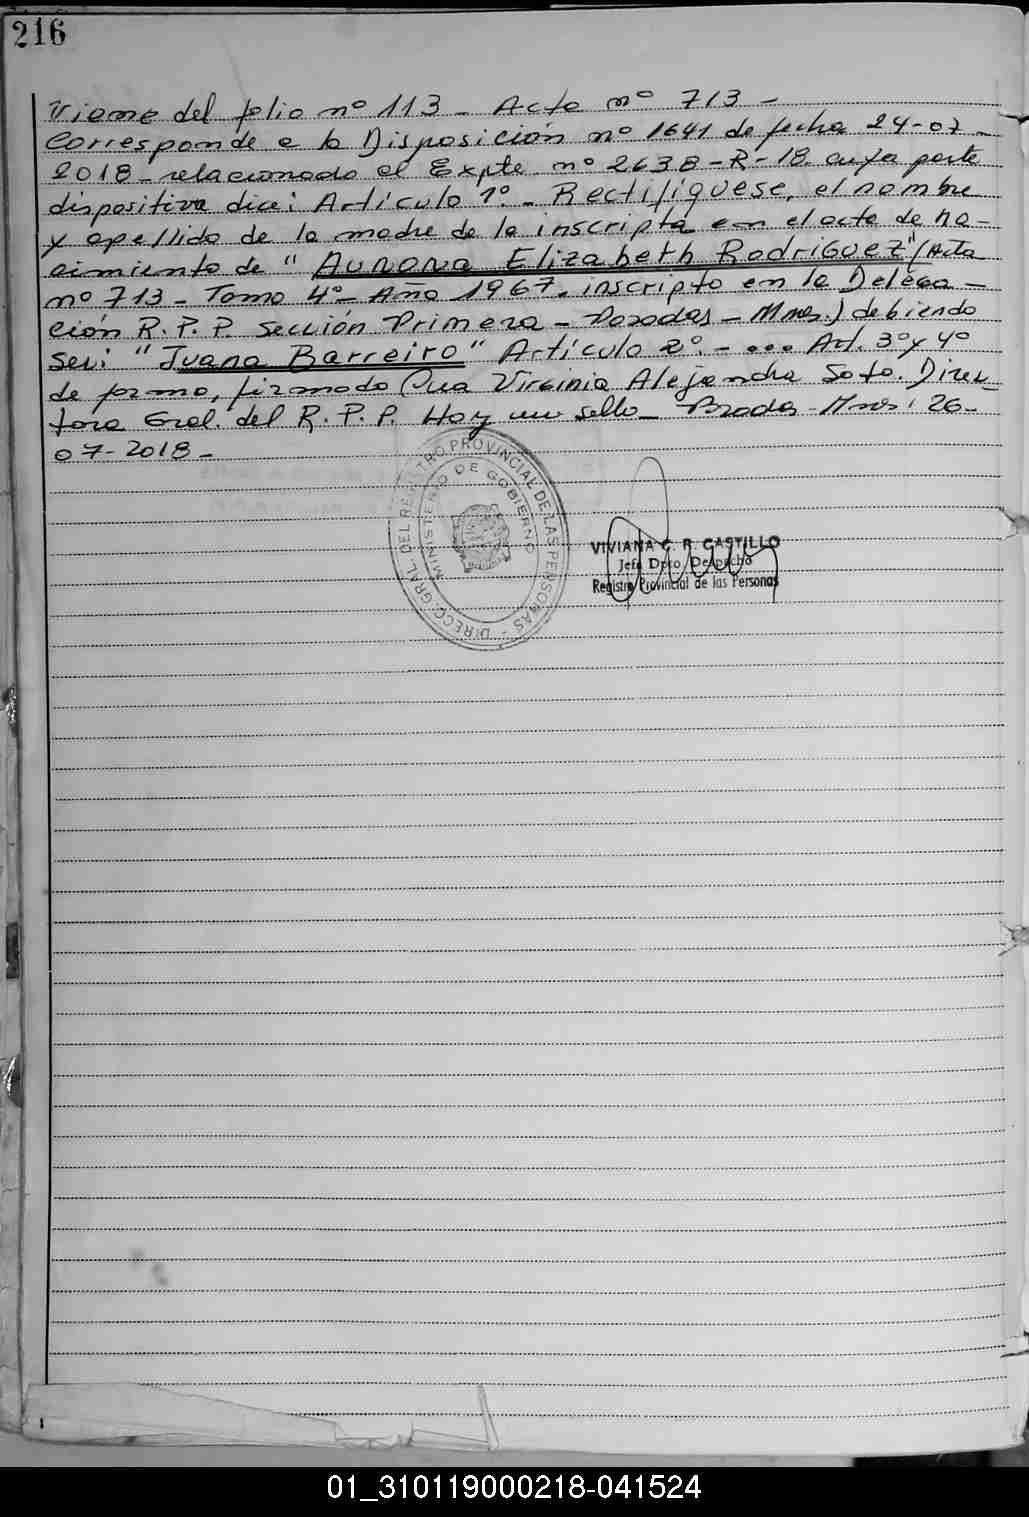 216
Viene del folio nº 113 - Acta nº 713 -
Corresponde a la Disposición nº 1641 de fecha 24-07-
2018 - relacionado al Expte nº 2638-R-18 cuya parte
dispositiva dice: Artículo 1º - Rectifíquese, el nombre
y apellido de la madre de la inscripta en el acta de na-
cimiento de "Aurora Elizabeth Rodriguez" (Acta
nº 713 - Tomo 4º - Año 1967. inscripto en la Delega-
ción R.P.P. Sección Primera - Posadas - Mnes.) debiendo
ser: "Juana Barreiro" Artículo 2º. - ... Art. 3º y 4º
de forma, firmado Virginia Alejandra Soto. Direc-
tora Gral. del R.P.P. Hay un sello - Posadas - Mnes: 26-
07-2018 -
DIRECC. GRAL. DEL REGISTRO PROVINCIAL DE LAS PERSONAS -
MINISTERIO DE GOBIERNO
VIVIANA C. R. CASTILLO
Jefe Dpto. Despacho
Registro Provincial de las Personas
01_310119000218-041524